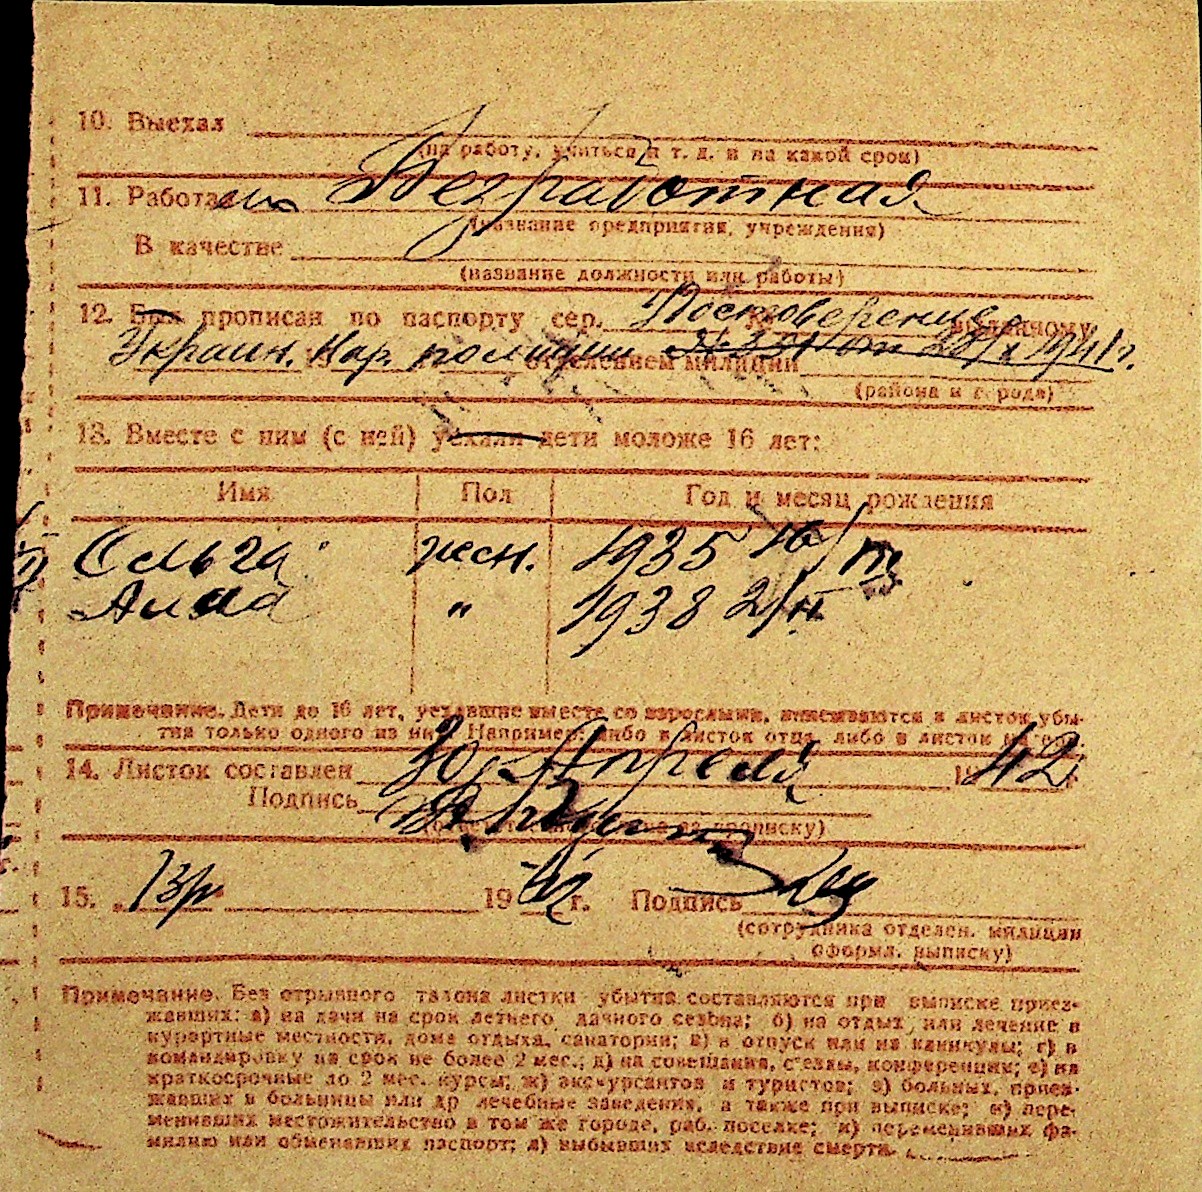 10. Выехал
(на работу, учиться и т. д. и на какой срок)
11. Работа Безработная
(название предприятия, учреждения)
В качестве
(название должности или работы)
12. Был прописан по паспорту сер. выданному
Украин. Нар. полиции отделением милиции 1941 г.
(района и города)
13. Вместе с ним (с ней) уехали дети моложе 16 лет:
Имя Пол Год и месяц рождения
Ольга жен. 1935 16/III
Анна " 1938 2/II
Примечание. Дети до 16 лет, уехавшие вместе со взрослыми, вписываются в листок убы-
тия только одного из них. Например: либо в листок отца, либо в листок матери.
14. Листок составлен 30 Апреля 1942
Подпись
прописку)
15. 1942 г. Подпись
(сотрудника отделен. милиции
оформл. выписку)
Примечание. Без отрывного талона листки убытия составляются при выписке приез-
жавших: а) на дачи на срок летнего дачного сезона; б) на отдых или лечение в
курортные местности, дома отдыха, санатории; в) в отпуск или на каникулы; г) в
командировку на срок не более 2 мес.; д) на совещания, с'езды, конференции; е) на
краткосрочные до 2 мес. курсы; ж) экскурсантов и туристов; з) больных, приез-
жавших в больницы или др лечебные заведения, а также при выписке; и) пере-
менивших местожительство в том же городе, раб. поселке; к) переменивших фа-
милию или обменавших паспорт; л) выбывших вследствие смерти.